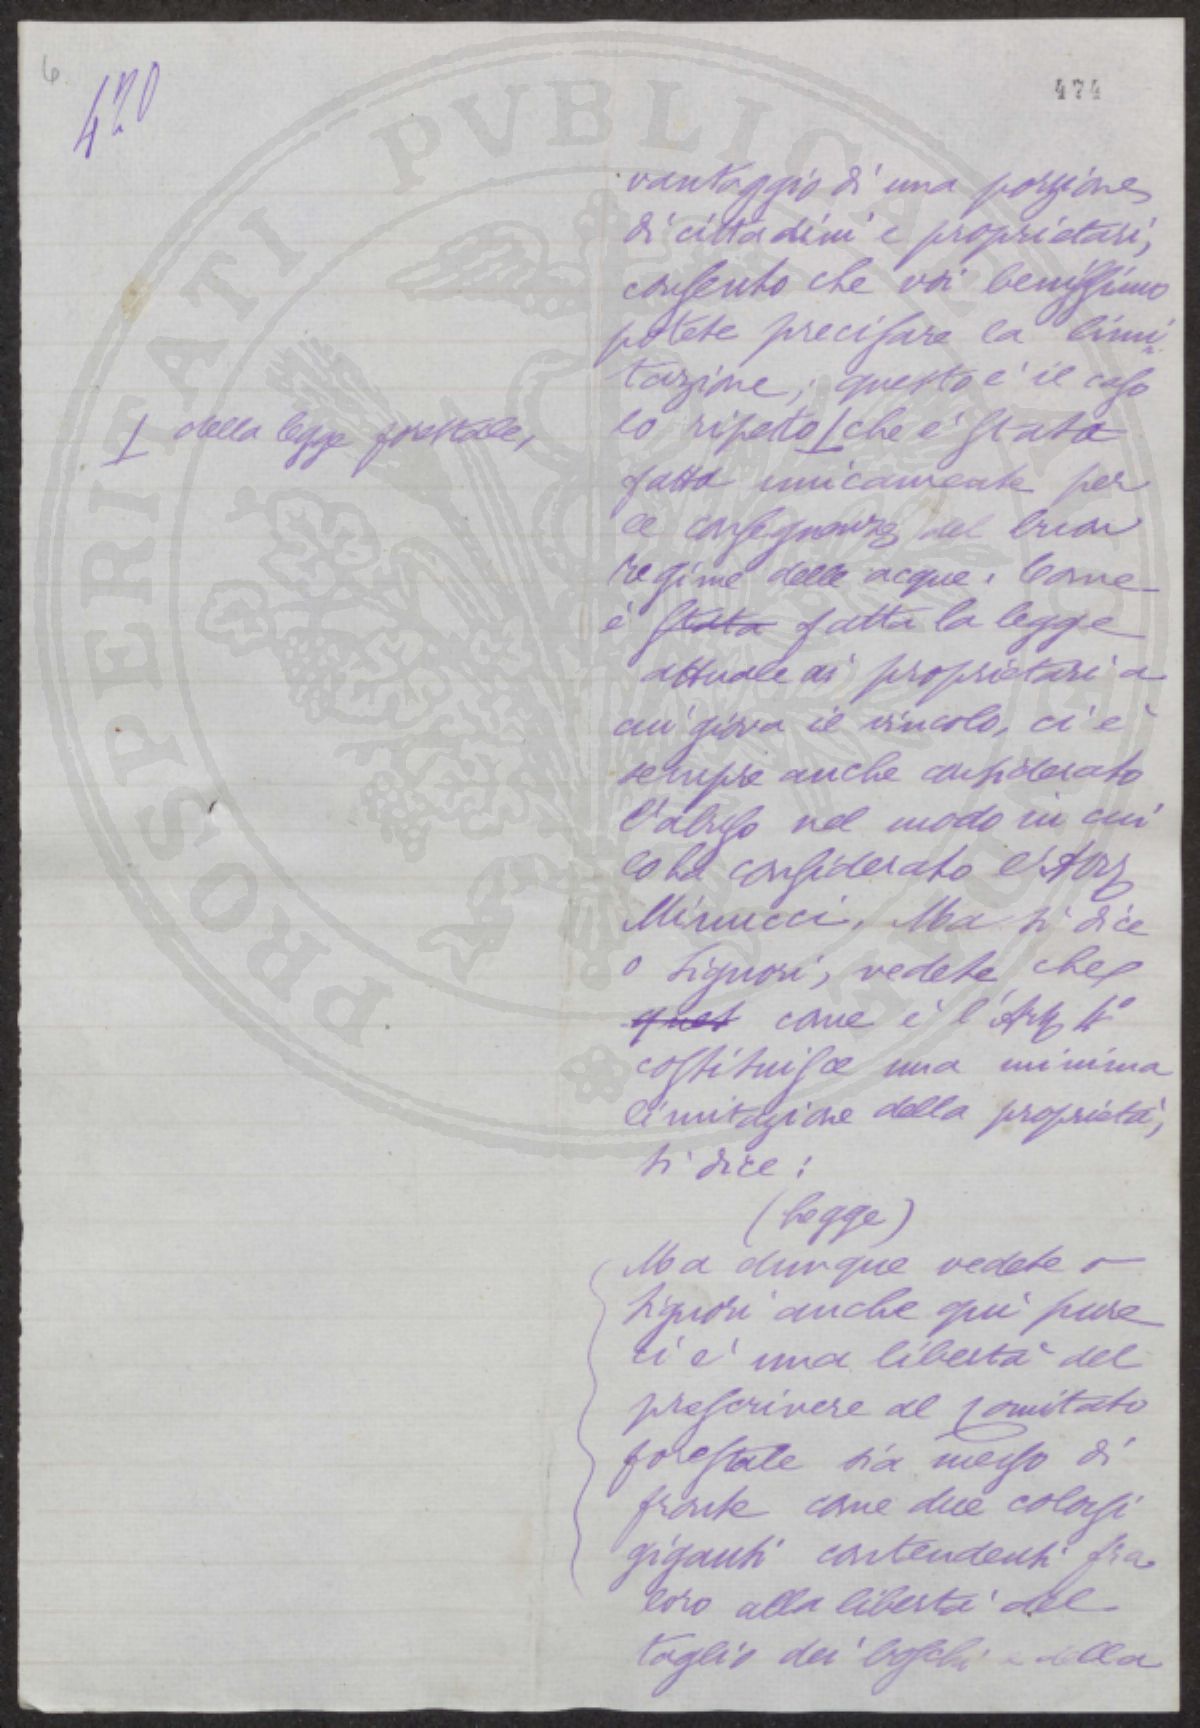 6
420
474
vantaggio di una porzione
di cittadini e proprietari,
consento che voi benissimo
potete precisare la limi=
tazione; questo è il caso
lo ripeto | che è stata
| della legge forestale,
fatta unicamente per
le conseguenze del buon
regime delle acque. Come
è stata fatta la legge
attuale ai proprietari a
cui giova il vincolo, ci è
sempre anche considerato
l'abuso nel modo in cui
lo ha considerato l'
Minucci. Ma si dice
o signori, vedete che
quest come è l'Art 4º
costituisce una minima
limitazione della proprietà,
si dice:
(legge)
Ma dunque vedete o
signori anche qui pure
ci è una libertà del
prescrivere al Comitato
forestale sia messo di
fronte come due colossi
giganti contendenti fra
loro alla libertà del
taglio dei boschi e della
PROSPERITATI PVBLICAE